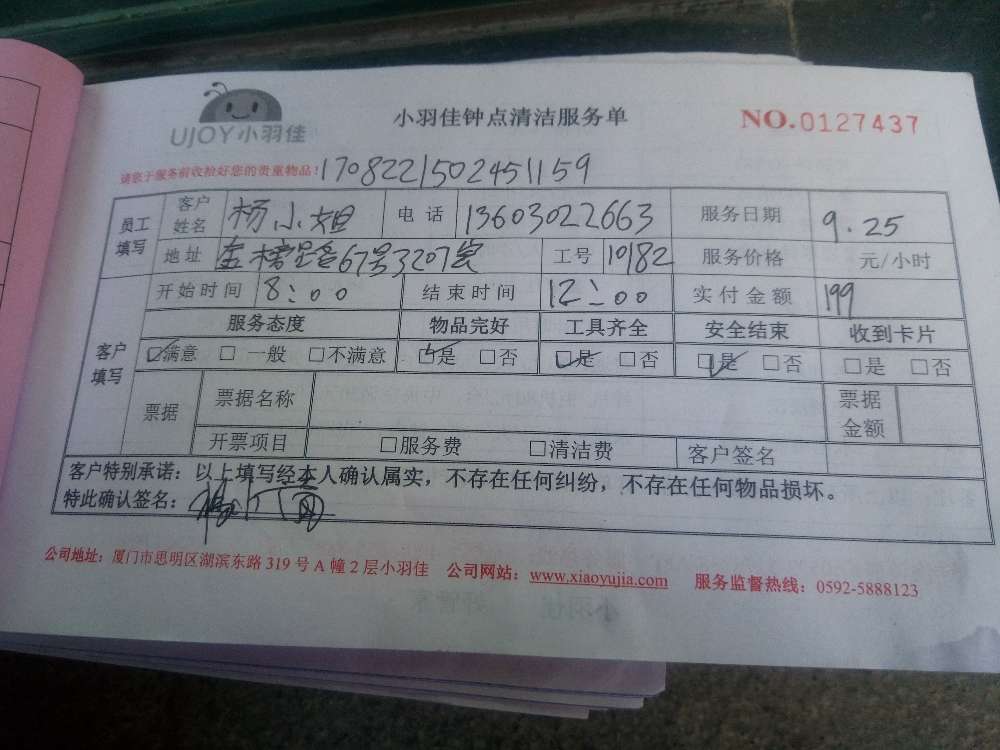 UJOY小羽佳
小羽佳钟点清洁服务单
NO.0127437
请您于服务前收拾好您的贵重物品!170822150245 1159
员工填写 客户姓名 杨小姐 电话 13603022663 服务日期 9.25
地址 金榜路67号3207室 工号 10182 服务价格 元/小时
开始时间 8:00 结束时间 12:00 实付金额 199
客户填写 服务态度 物品完好 工具齐全 安全结束 收到卡片
☑满意 □一般 □不满意 ☑是 □否 ☑是 □否 ☑是 □否 □是 □否
票据 票据名称 票据金额
开票项目 □服务费 □清洁费 客户签名
客户特别承诺:以上填写经本人确认属实,不存在任何纠纷,不存在任何物品损坏。
特此确认签名:
公司地址:厦门市思明区湖滨东路319号A幢2层小羽佳 公司网站:www.xiaoyujia.com 服务监督热线:0592-5888123